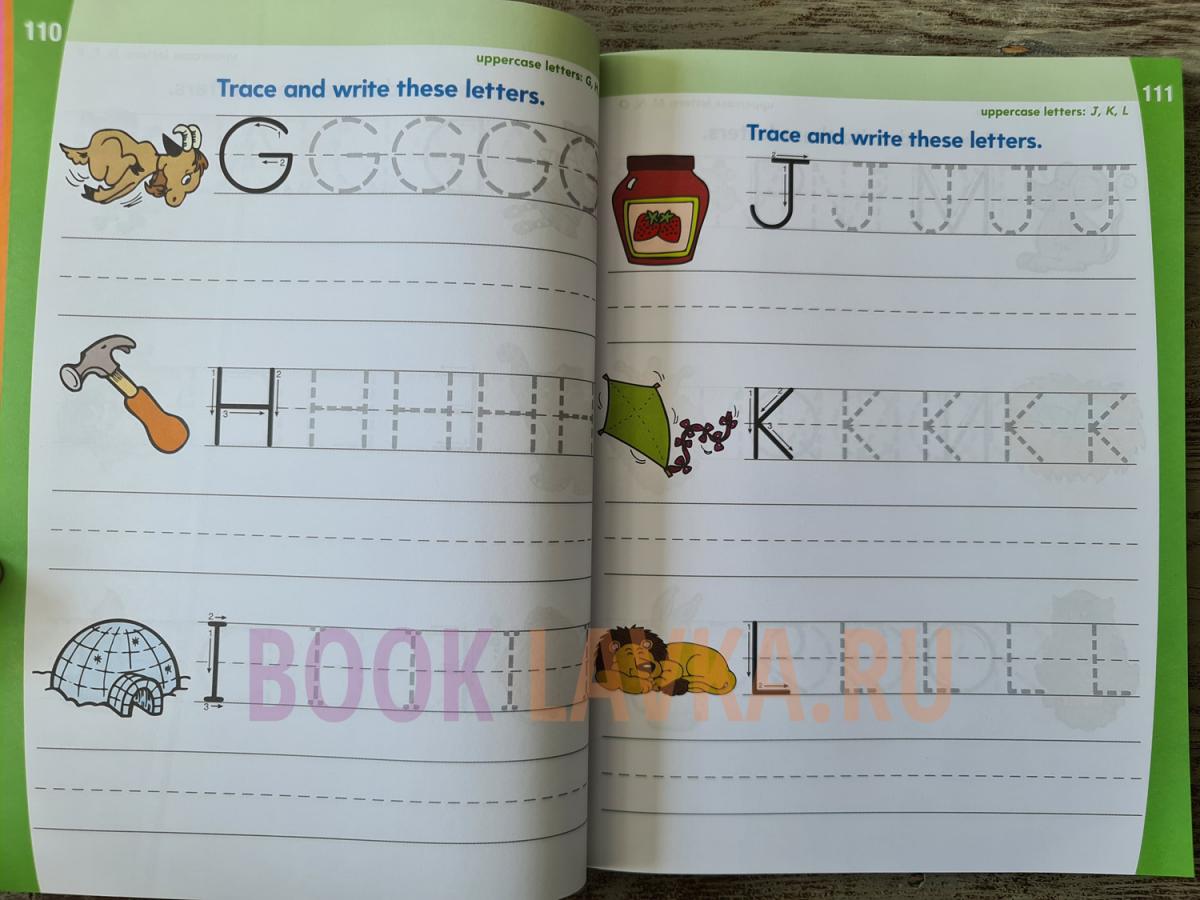 110
uppercase letters: G, H
Trace and write these letters.
G G G G G
H H H H H
I I I I
111
uppercase letters: J, K, L
Trace and write these letters.
J J J J J
K K K K K
L L L L L
BOOK LAVKA.RU